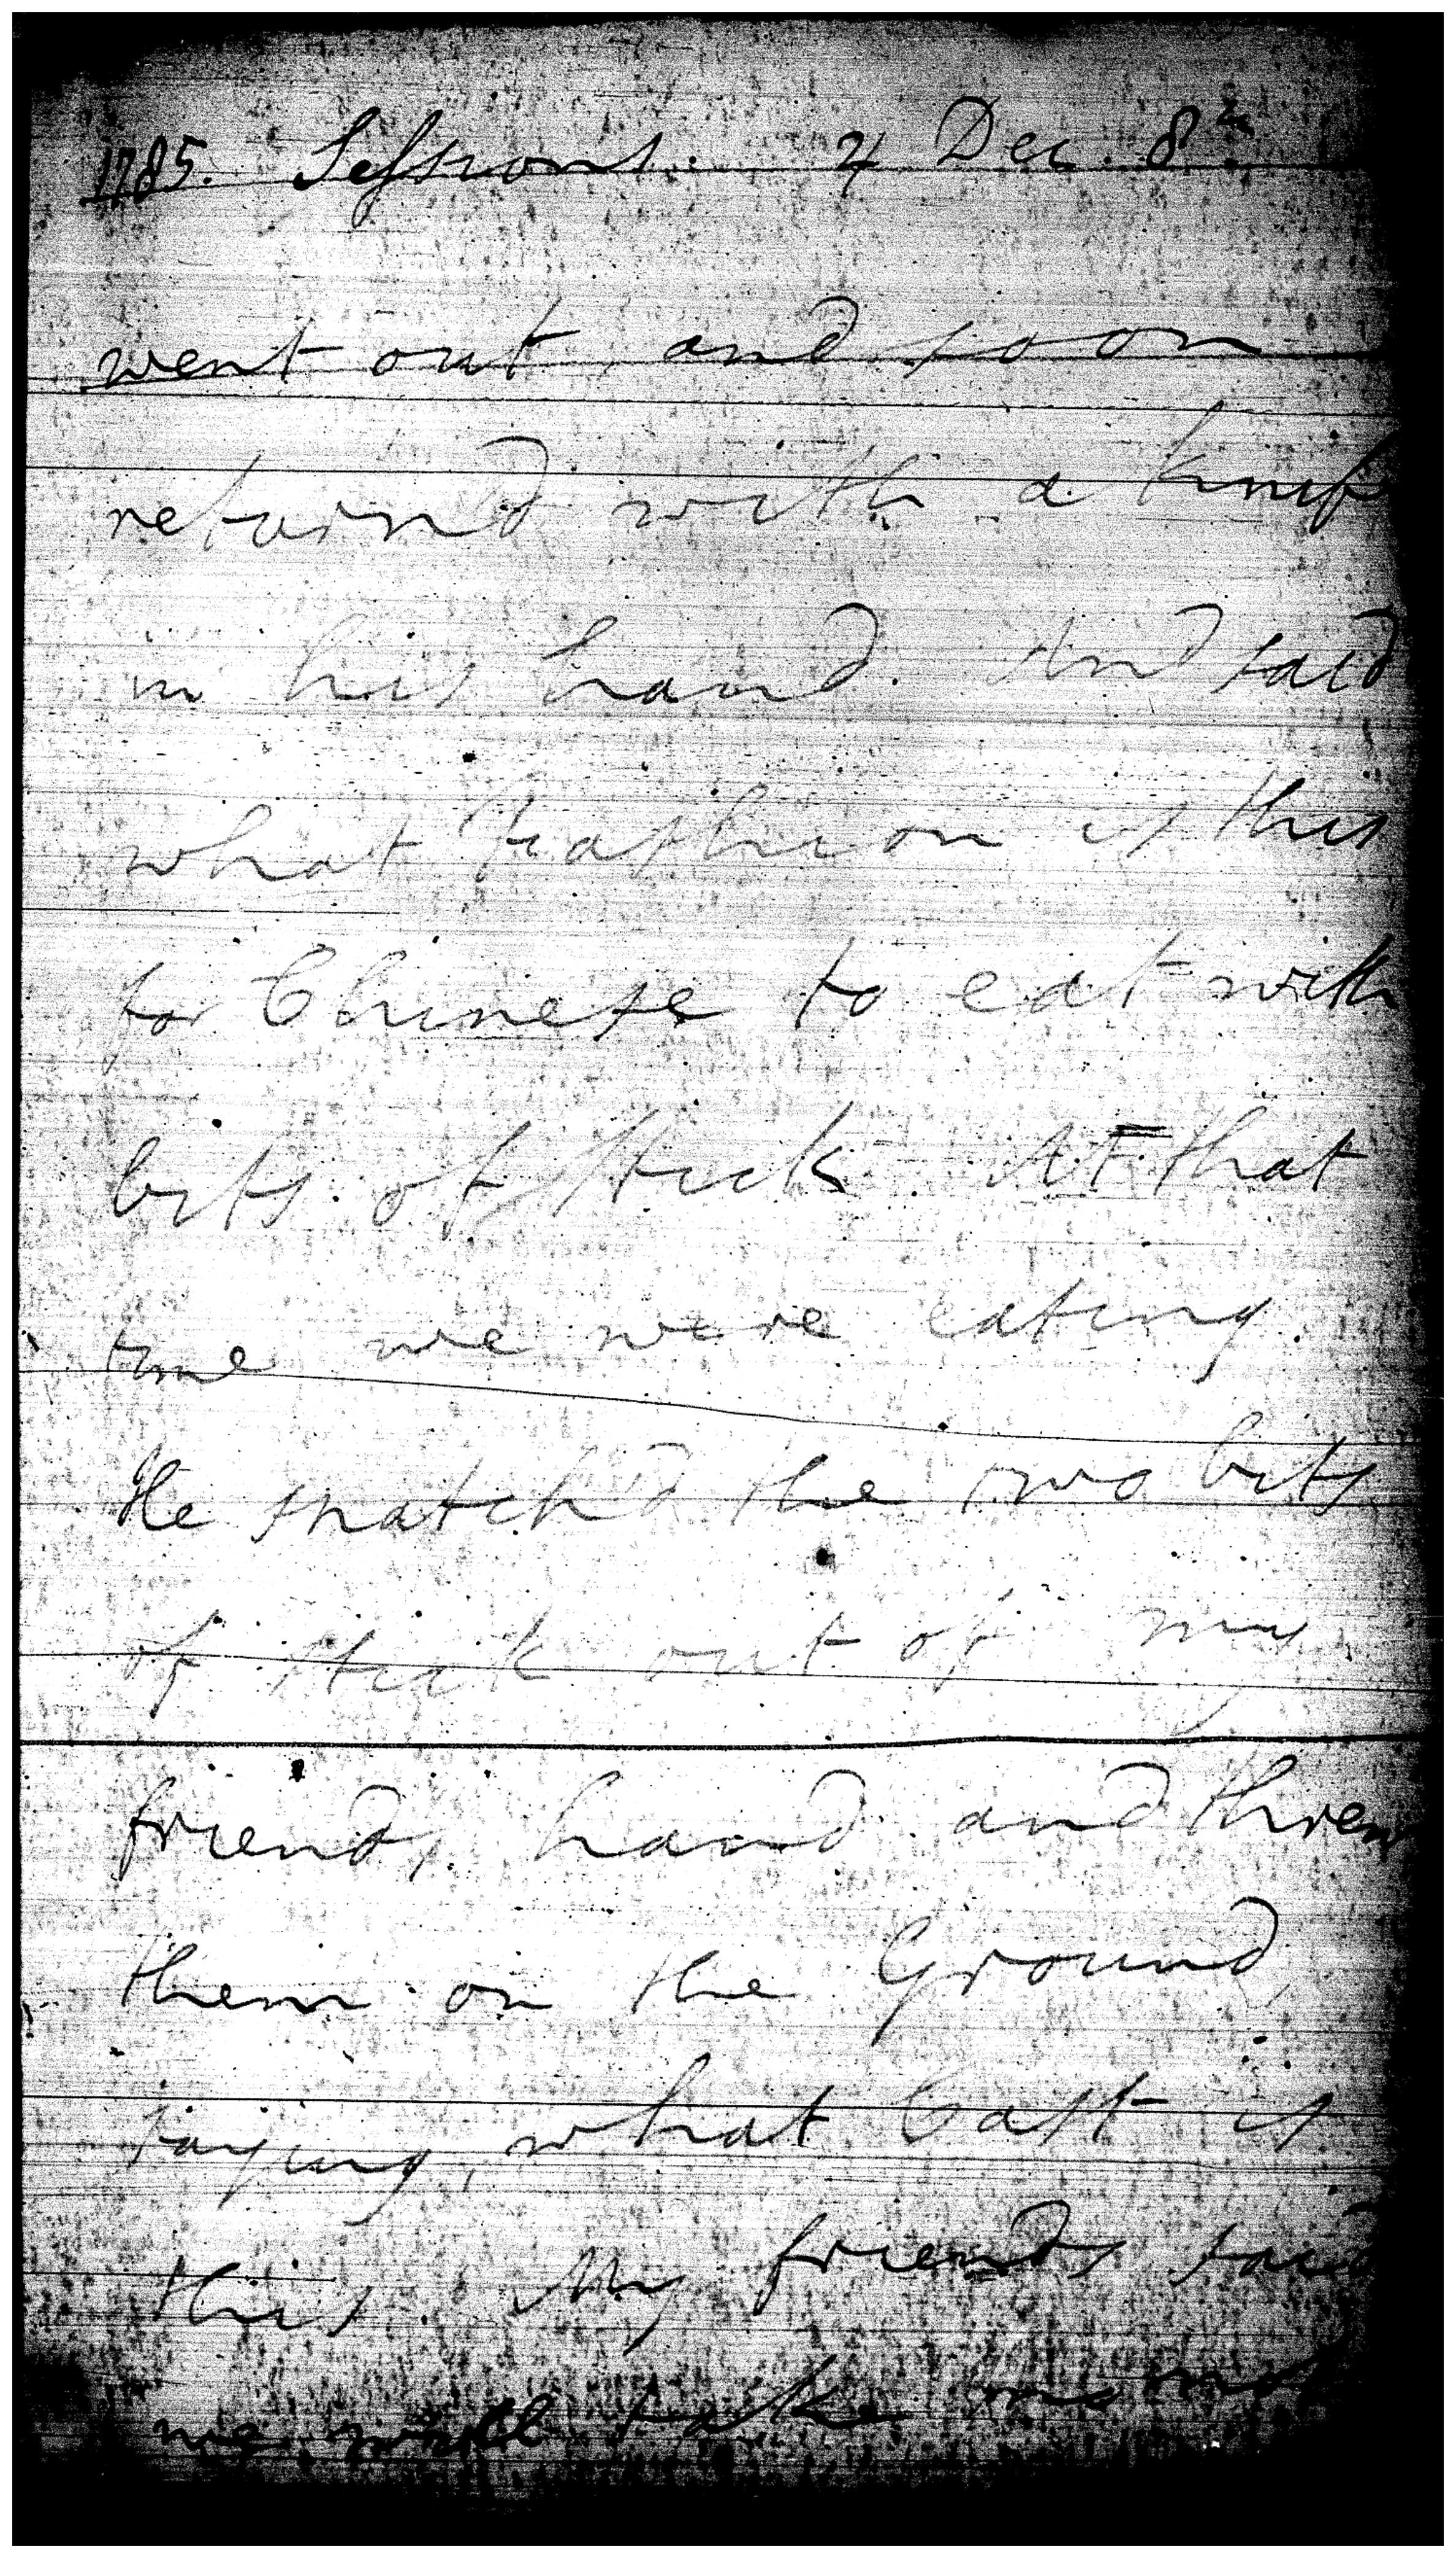 1785. Sessions. 4 Dec. 8
went out and soon
returnd with a knife
in his hand. And said
what fashion is this
for Chinese to eat with
bits of stick. At that
time we were eating.
He snatch'd the two bits
of stick out of my
friends hand and threw
them on the Ground
saying, what Cast is
this. My friends said
we will take no